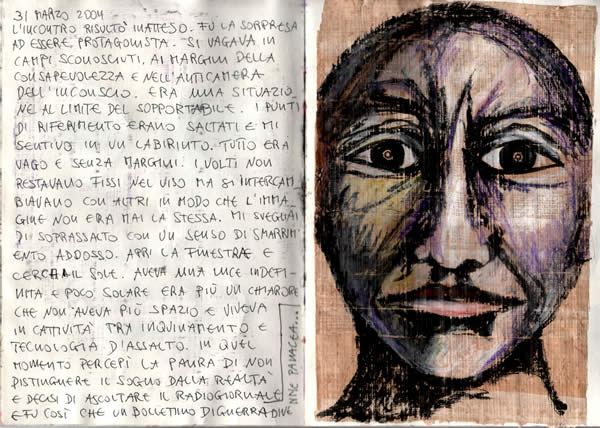 31 MARZO 2004
L'INCONTRO RISULTÒ INATTESO. FU LA SORPRESA
AD ESSERE PROTAGONISTA. SI VAGAVA IN
CAMPI SCONOSCIUTI, AI MARGINI DELLA
CONSAPEVOLEZZA E NELL'ANTICAMERA
DELL'INCONSCIO. ERA UNA SITUAZIO
NE AL LIMITE DEL SOPPORTABILE. I PUNTI
DI RIFERIMENTO ERANO SALTATI E MI
SENTIVO IN UN LABIRINTO. TUTTO ERA
VAGO E SENZA MARGINI. I VOLTI NON
RESTAVANO FISSI NEL VISO MA SI INTERCAM
BIAVANO CON ALTRI IN MODO CHE L'IMMA
GINE NON ERA MAI LA STESSA. MI SVEGLIAI
DI SOPRASSALTO CON UN SENSO DI SMARRIM
ENTO ADDOSSO. APRI LA FINESTRA E
CERCAI IL SOLE. AVEVA UNA LUCE INDEFI
NITA E POCO SOLARE ERA PIÙ UN CHIARORE
CHE NON AVEVA PIÙ SPAZIO E VIVEVA
IN CATTIVITÀ TRA INQUINAMENTO E
TECNOLOGIA D'ASSALTO. IN QUEL
MOMENTO PERCEPÌ LA PAURA DI NON
DISTINGUERE IL SOGNO DALLA REALTÀ
E DECISI DI ASCOLTARE IL RADIOGIORNALE
E FU COSÌ CHE UN BOLLETTINO DI GUERRA DIVE
PANACEA...